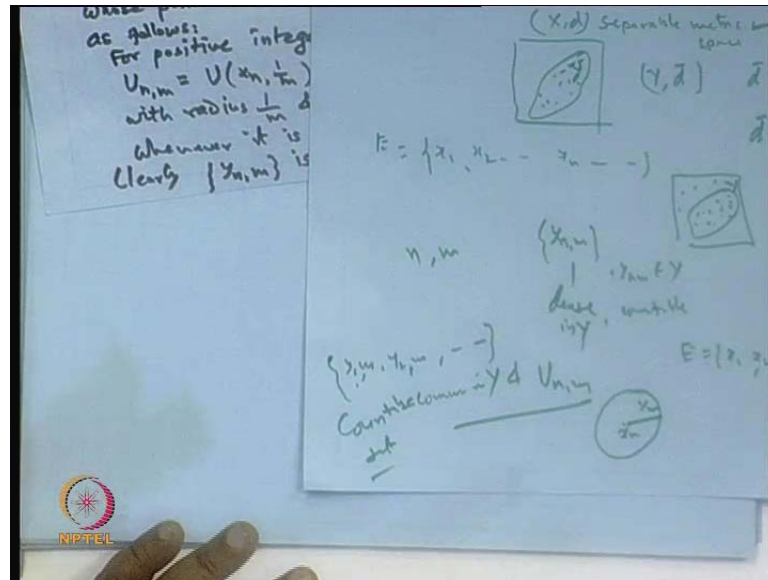 as follows:
For positive integ
U_{n,m} = U(x_n, 1/m)
with radius 1/m &
whenever it is
Clearly {y_{n,m}} is
(X,d) separable metric
space
(Y, d̄) d̄
d̄
E = {x_1, x_2, -- x_n --}
n, m
{y_{n,m}}
y_{nm} ∈ Y
dense
in Y, countable
E = {x_1
{y_{1,m}, y_{2,m}, --}
Y & U_{n,m}
NPTEL